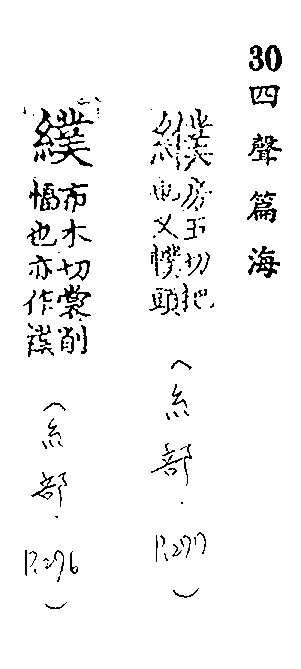 30四聲篇海
纀
房玉切把
也又幞頭
(糸部.P.277)
布木切裳削
幅也亦作襆
(糸部.P.276)